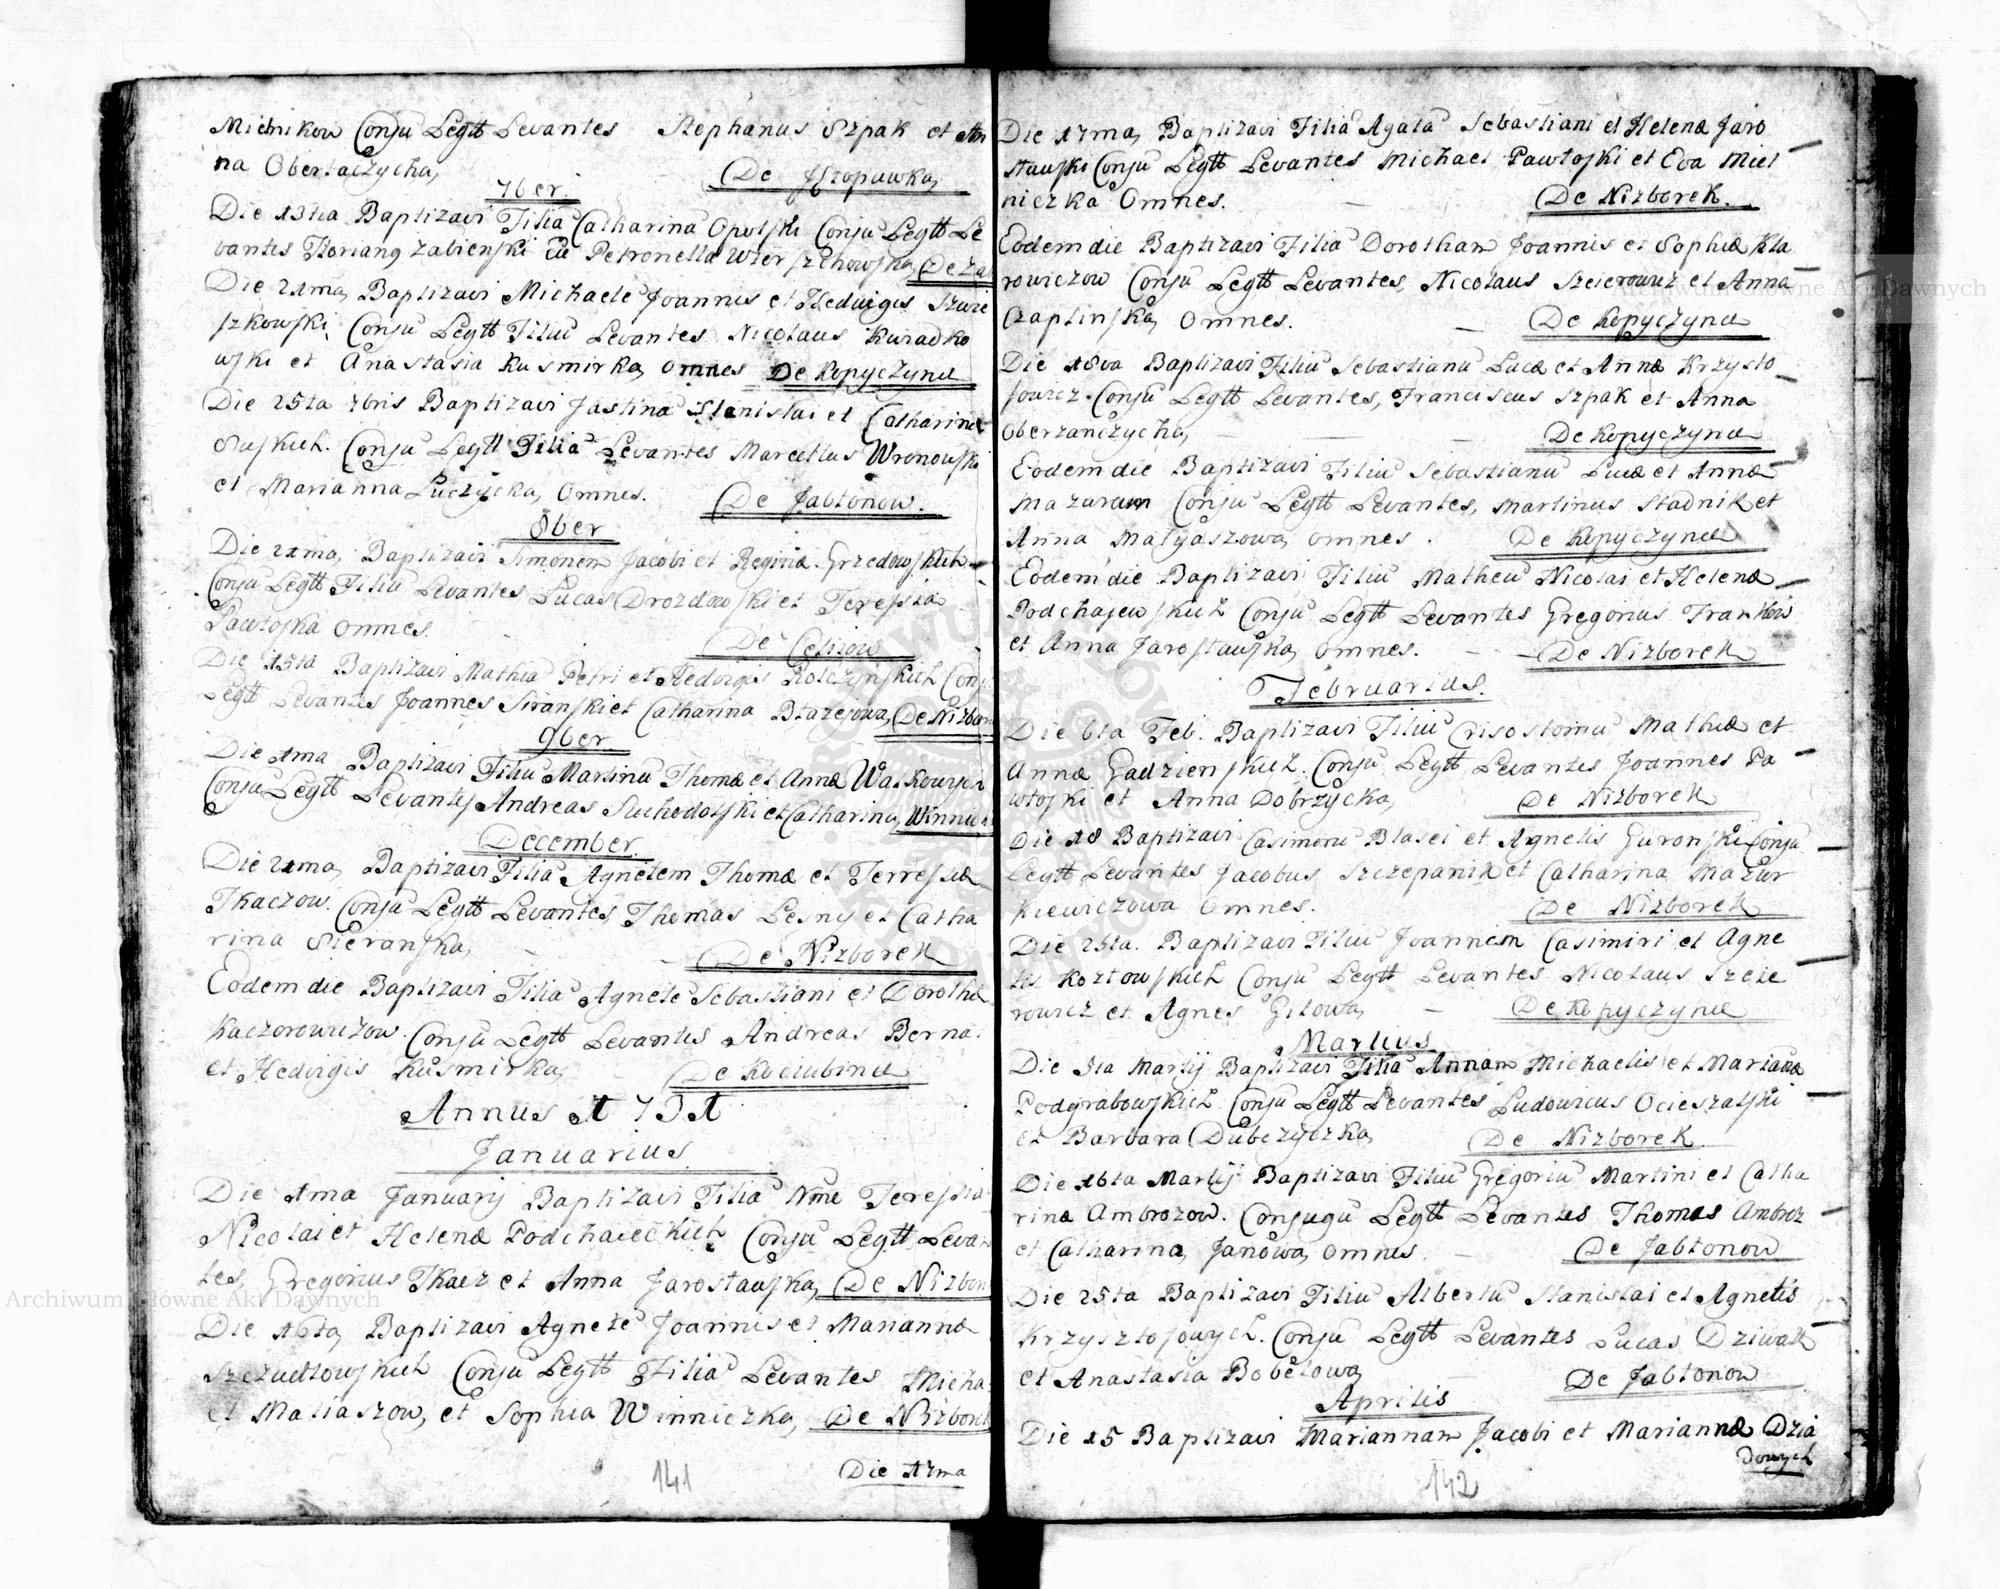 Mielnikow Conju Legtt Levantes Stephanus Szpak et An
na Obertaczycha,
De Hropawka,
7ber.
Die 13tia Baptizavi Filia Catharina Opolski Conju Legtt Le
vantes Floriang Zabienski Petronella
Die 21ma, Baptizavi Michaele Joannis et Hedvigis
szkowski. Conju Legtt Filiu Levantes Nicolaus Kuradko
wski et Anastasia Kusmirka, omnes De Kopyczynce
Die 25ta 7bris Baptizavi Justina Stanislai et Catharinæ
Suskich. Conju Legtt Filia Levantes Marcellus Wronowski
et Marianna Luczycka, Omnes. De Jabtonow.
8ber
Die 21ma, Baptizavi Simonem Jacobi et Reginæ Grzedowskich
Conju Legtt Filiu Levantes Lucas Drozdowski et Teressia
Pawtoska omnes.
De Celizow
Die 15ta Baptizavi Mathia Petri et Hedvigis Rolczynskich Conj
Legtt Levantes Joannes Siranski et Catharina Btazejowa, De Nizbor
9ber
Die 1ma Baptizavi Filiu Martinu Thomæ et Annæ
Conju Legtt Levantes Andreas Suchodolski et Catharina, Winni
December
Die 21ma, Baptizavi Filia Agnetem Thomæ et Terressiæ
Tkaczow. Conju Legtt Levantes Thomas Lesny et Catha
rina Sieranska, De Nizborek
Eodem die Baptizavi Filia Agnete Sebastiani et Dorothæ
Kaczorowiczow. Conju Legtt Levantes Andreas Berna.
et Hedvigis Kusmirka, De Kociubince
Annus 1731
Januarius
Die 1ma Januarij Baptizavi Filia Nme Teressia
Nicolai et Helenæ Podchaieckich Conju Legtt Levan
tes, Gregorius Tkacz et Anna Jarostawska, De Nizbor
Die 16ta, Baptizavi Agnete Joannis et Mariannæ
Szczudtowskich Conju Legtt Filia Levantes Micha
el Matiaszow, et Sophia Winniczka, De Nizborek
141
Die 17ma
Die 17ma, Baptizavi Filia Agata Sebastiani et Helenæ Jaro
stawski Conju Legtt Levantes Michael Pawtoski et Eva Miel
niczka Omnes. De Nizborek.
Eodem die Baptizavi Filia Dorotham Joannis et Sophiæ Kla
rowiczow Conju Legtt Levantes, Nicolaus Szeierowicz et Anna
Czaplinska, Omnes. De Kopyczynce
Die 18va Baptizavi Filiu Sebastianu Lucæ et Annæ Krzysto
fowicz. Conju Legtt Levantes, Franciscus Szpak et Anna
Oberzanczycha, De Kopyczynce
Eodem die Baptizavi Filiu Sebastianu Lucæ et Annæ
Mazurum Conju Legtt Levantes, Martinus Stadnik et
Anna Matyaszowa, omnes. De Kopyczynce
Eodem die Baptizavi Filiu Matheu Nicolai et Helenæ
Podchajewskich Conju Legtt Levantes Gregorius
et Anna Jarostawska, omnes. De Nizborek
Februarius.
Die 6ta Feb. Baptizavi Filiu Crisostomu Mathiæ et
Annæ Gadzienskich. Conju Legtt Levantes Joannes Pa
wtoski et Anna Dobrzycka, De Nizborek
Die 18 Baptizavi Casimiru Blasei et Agnetis Guronski Conju
Legtt Levantes Jacobus Szczepanik et Catharina Mazur
kiewiczowa Omnes. De Nizborek
Die 25ta. Baptizavi Filiu Joannem Casimiri et Agne
tis Koztowskich Conju Legtt Levantes Nicolaus Szeie
rowicz et Agnes Gilowa, De Kopyczynce
Martius
Die 5ta Martij Baptizavi Filia Annam Michaelis et Marianæ
Podgrabowskich Conju Legtt Levantes Ludovicus Ocieszalski
et Barbara Dubczyczka, De Nizborek
Die 16ta Martij Baptizavi Filiu Gregoriu Martini et Catha
rinæ Ambrozow. Conjugu Legtt Levantes Thomas Ambroz
et Catharina, Janowa, omnes. De Jabtonow
Die 25ta Baptizavi Filiu Albertu Stanislai et Agnetis
Krzysztofowych. Conju Legtt Levantes Lucas Dziwak
et Anastasia Bobelowa, De Jabtonow
Aprilis
Die 15 Baptizavi Mariannam Jacobi et Mariannæ Dzia
dowych
142
Archiwum Główne Akt Dawnych
Archiwum Główne Akt Dawnych